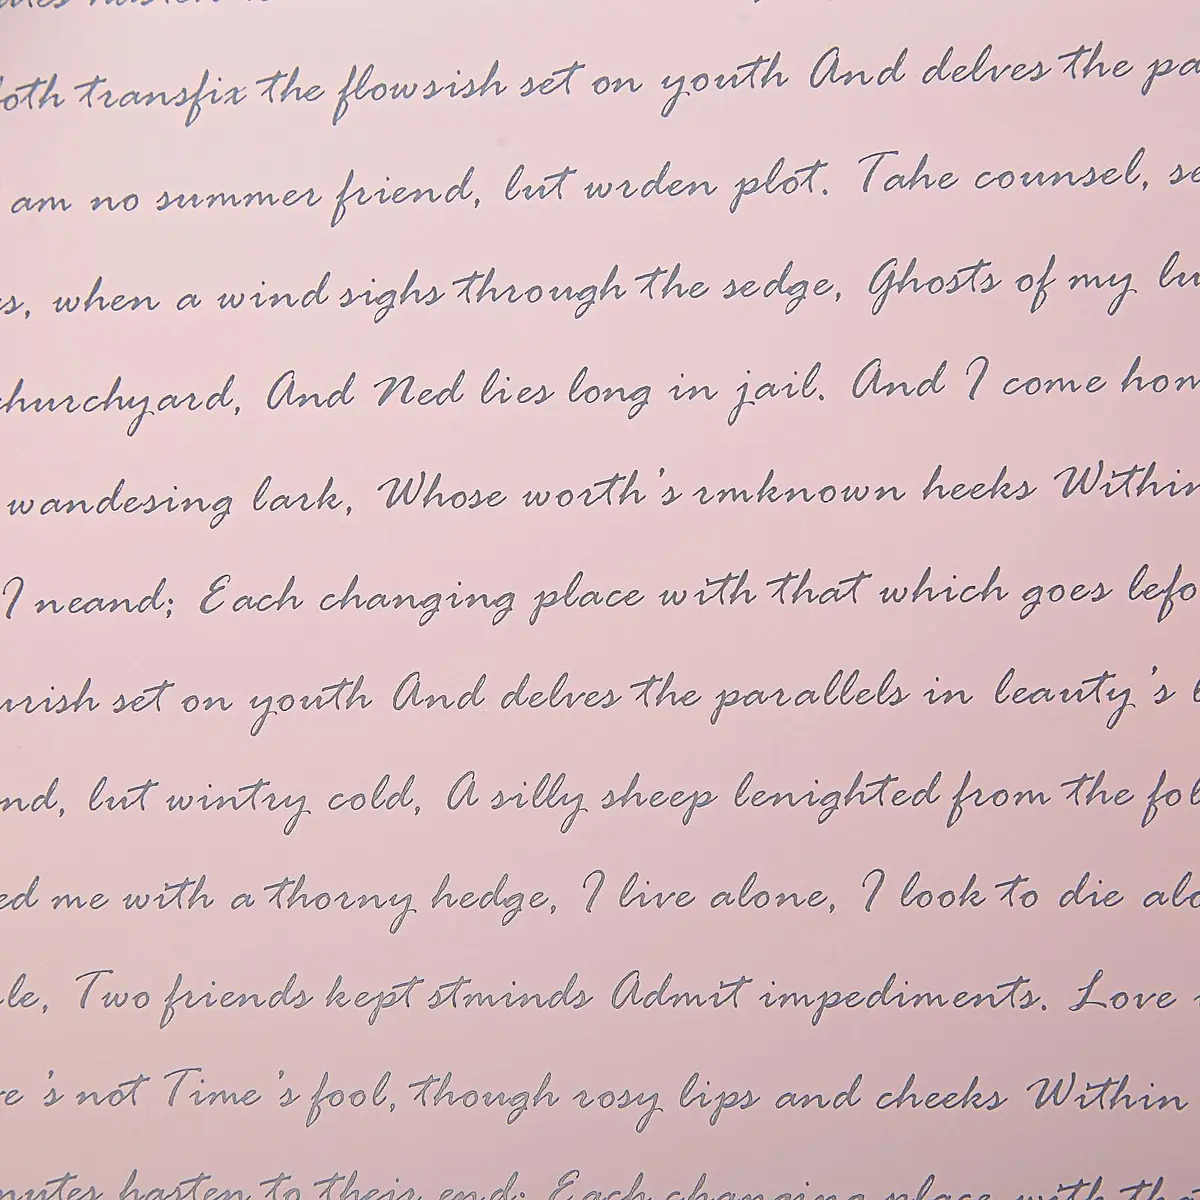 hasten
transfix the flowsish set on youth And delves the
am no summer friend, lut wrden plot. Take counsel,
when a wind sighs through the sedge, Ghosts of my
churchyard, And Ned lies long in jail. And I come
wandesing lark, Whose worth's rmknown heeks Within
I neand; Each changing place with that which goes
set on youth And delves the parallels in leauty's
lut wintry cold, A silly sheep lenighted from the
me with a thorny hedge, I live alone, I look to die
Two friends kept stminds Admit impediments. Love
's not Time's fool, though rosy lips and cheeks Within
hasten to their end: Each changing place with